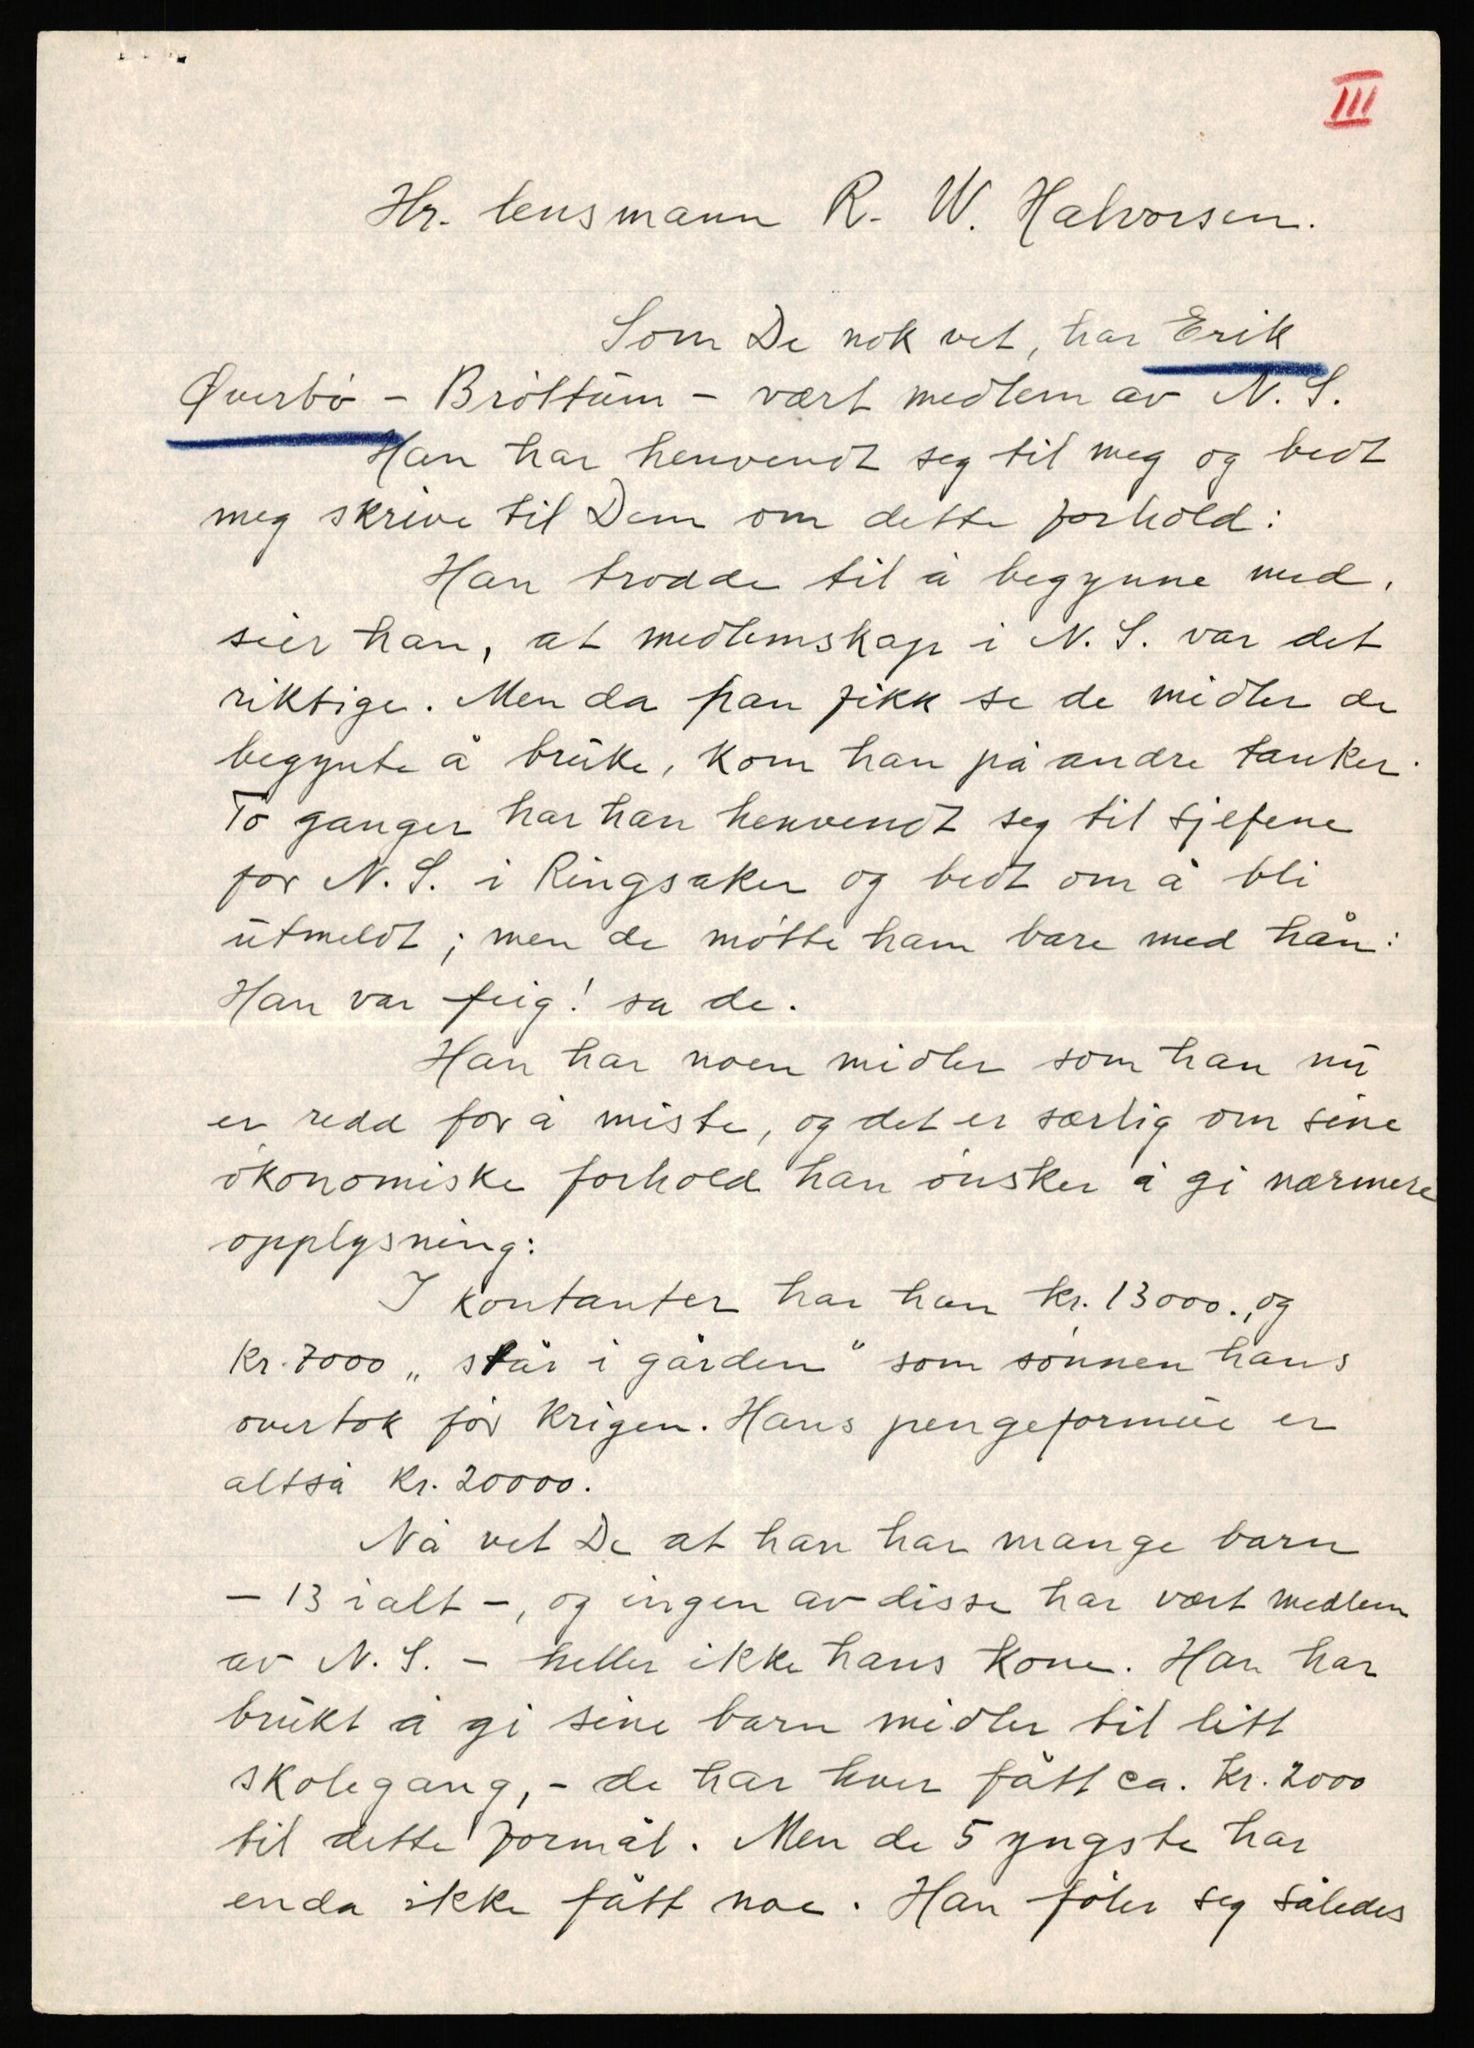 III
Hr. lensmann R. W. Halvorsen.
Som De nok vet, har Erik
Øverbö - Bröttum - vært medlem av N. S.
Han har henvendt seg til meg og bedt
meg skrive til Dem om dette forhold:
Han trodde til å begynne med,
sier han, at medlemskap i N. S. var det
riktige. Men da han fikk se de midler de
begynte å bruke, kom han på andre tanker.
To ganger har han henvendt seg til sjefene
for N. S. i Ringsaker og bedt om å bli
utmeldt; men de mötte ham bare med hån:
Han var feig! sa de.
Han har noen midler som han nu
er redd for å miste, og det er særlig om sine
ökonomiske forhold han önsker å gi nærmere
opplysning:
I kontanter har han kr. 13000., og
kr. 7000 „står i gården“ som sönnen hans
overtok för krigen. Hans pengeformue er
altså kr. 20000.
Nå vet De at han har mange barn
- 13 ialt -, og ingen av disse har vært medlem
av N. S. - heller ikke hans kone. Han har
brukt å gi sine barn midler til litt
skolegang, - de har hver fått ca. kr. 2000
til dette formål. Men de 5 yngste har
enda ikke fått noe. Han föler seg således